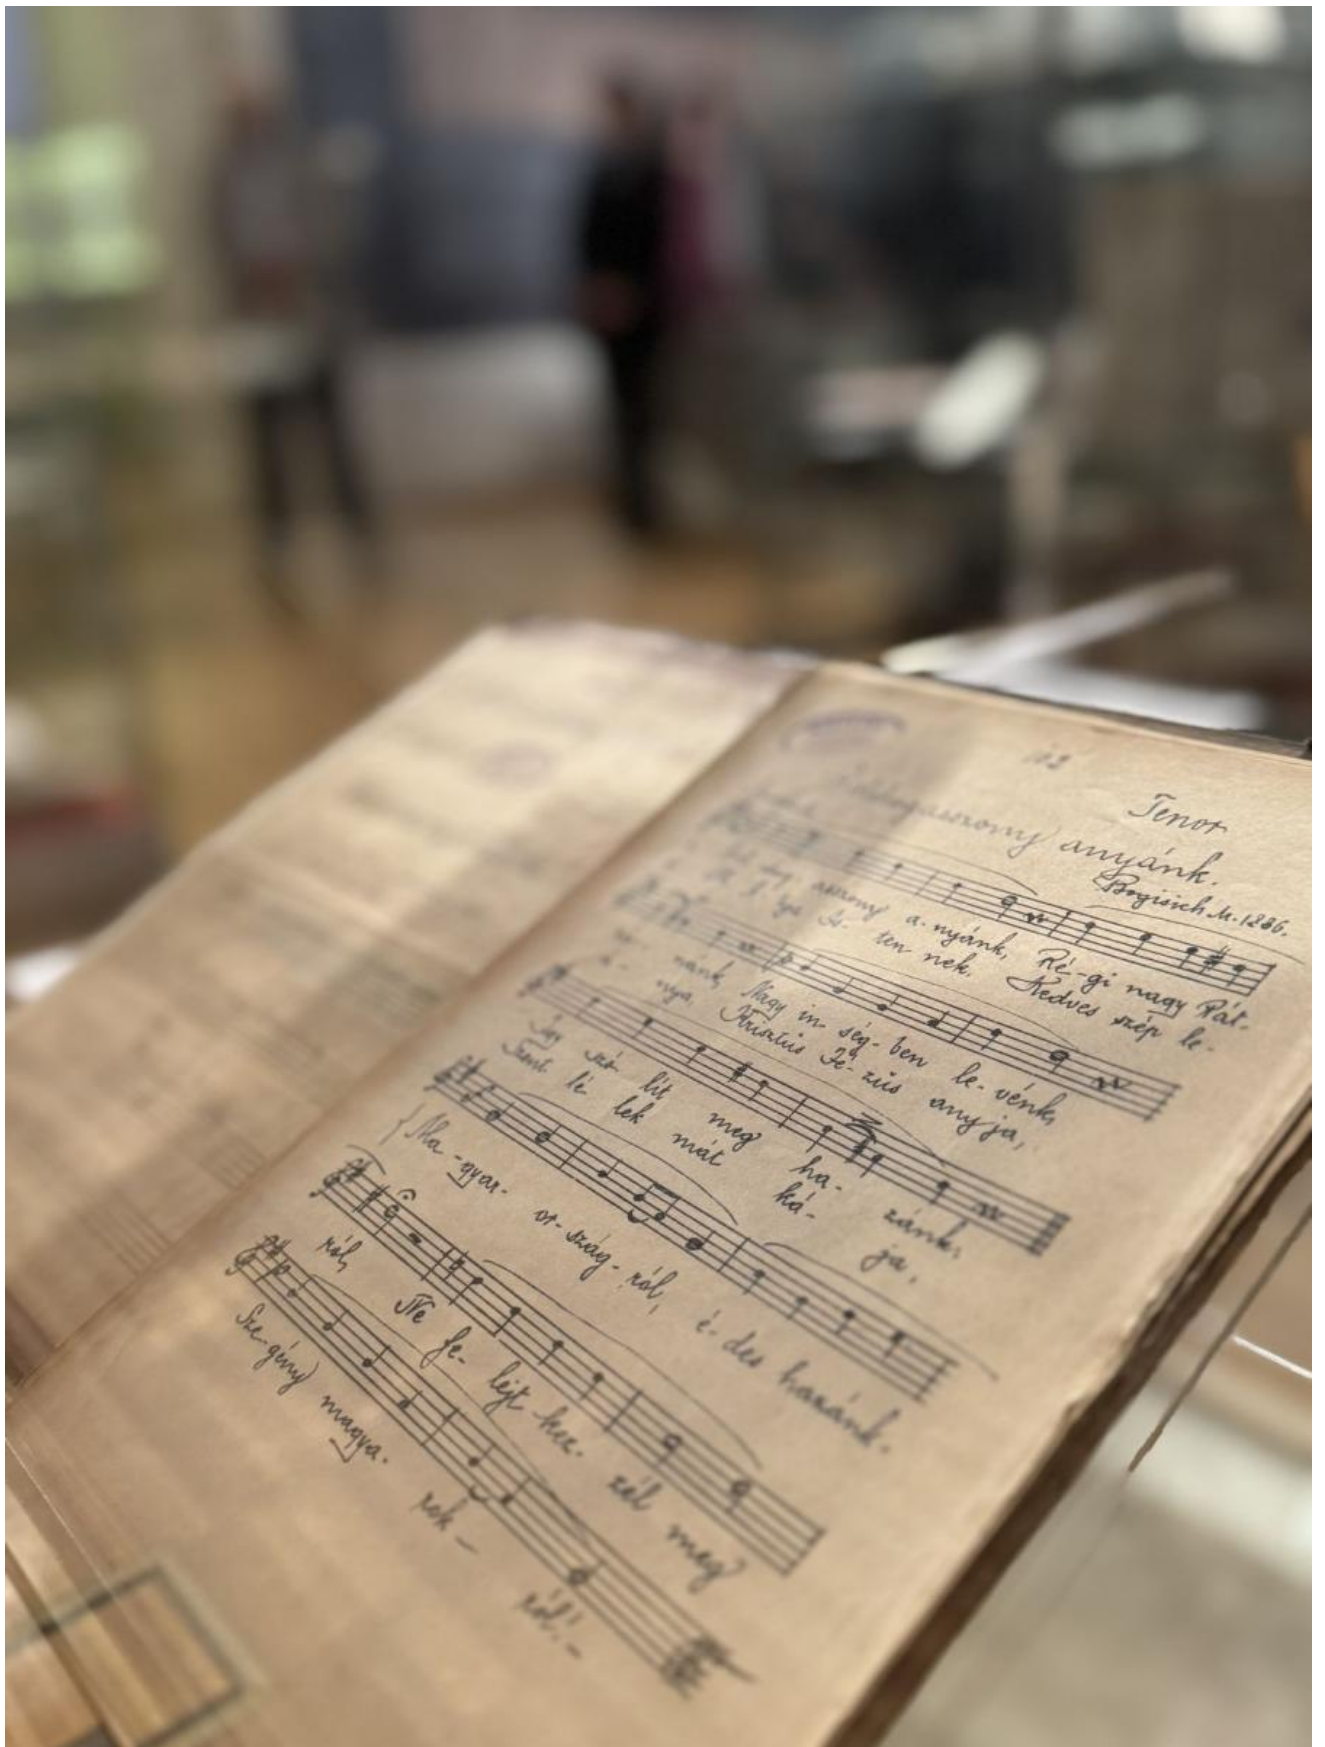 Tenor
anyánk.
Bogisich M. 1286.
asszony a-nyánk, Ré-gi nagy Pát-
Is- ten nek. Kedves szép le-
nánk, Nagy in-ség-ben le-vénk,
nya, Krisztus Jé-zus anyja,
így szó lít meg ha- zánk,
Szent lé lek mát ká- ja,
Ma-gyar- or-szág-ról, é-des hazánk-
ról, Ne fe- lejt-kez- zél meg
Sze-gény magya- rok- ról!-